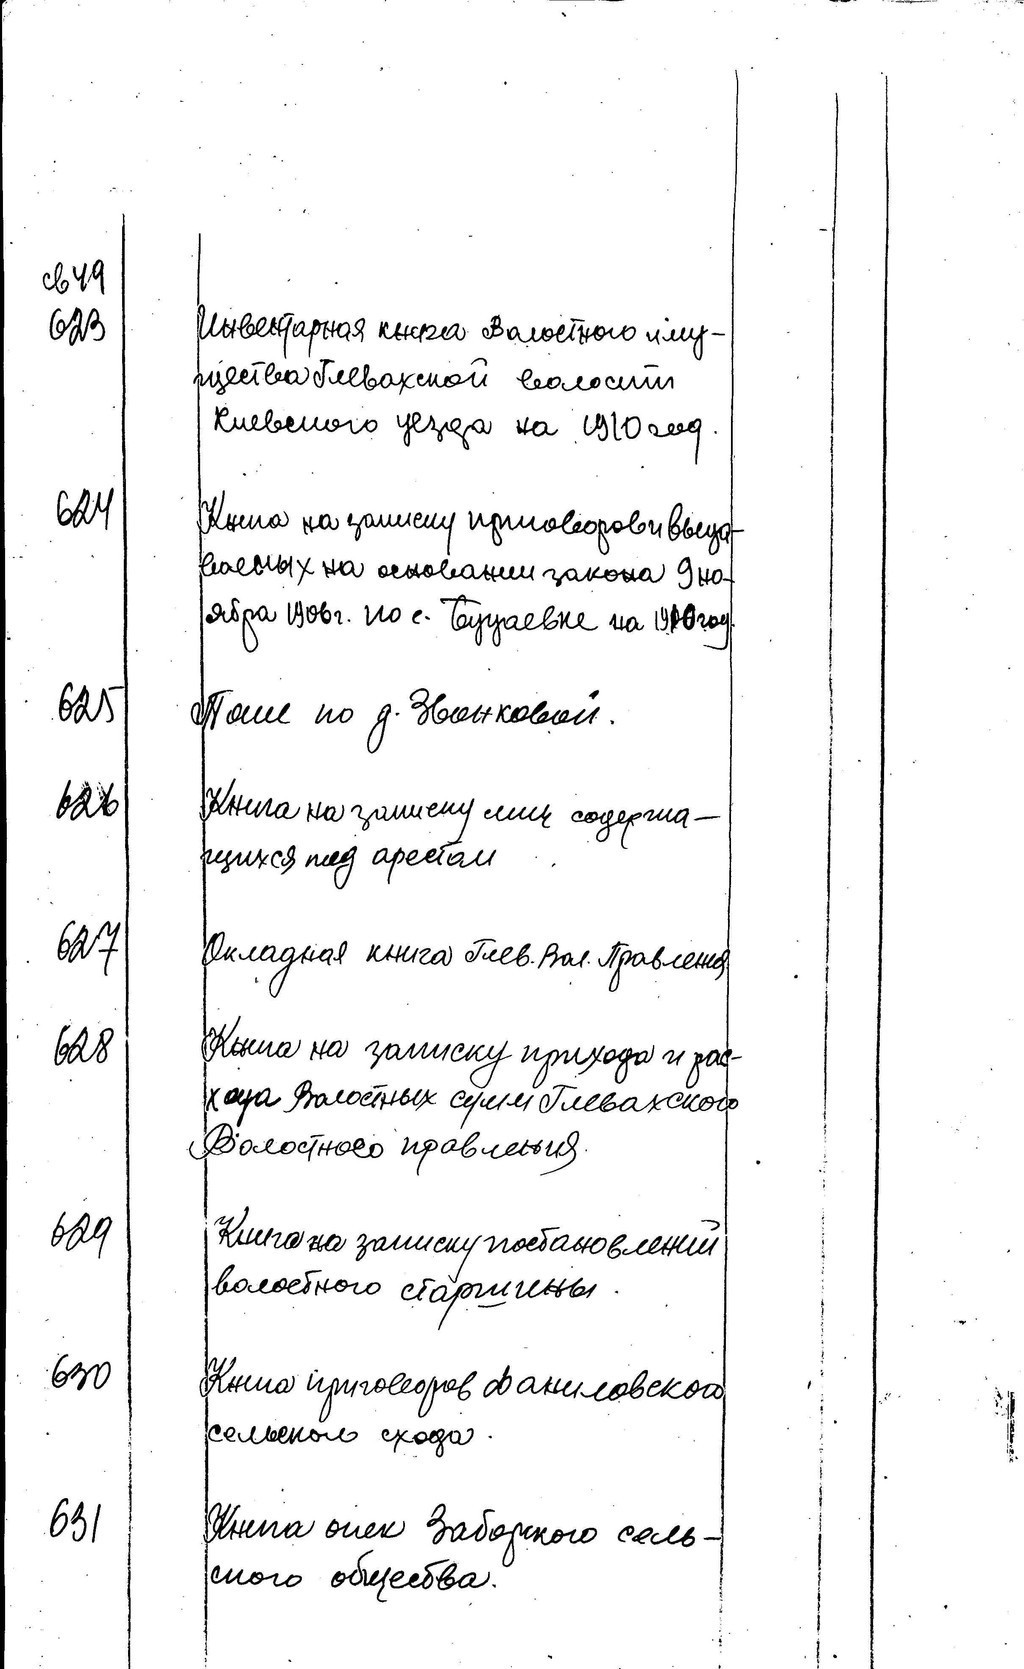 св 49
623 Инвентарная книга Волостного иму-
щества Глевахской волости
Киевского уезда на 1910 год.
624 Книга на записку приговоров и выда-
ваемых на основании закона 9 но-
ября 1906 г. по с. Бугаевке на 1910 год.
625 Тоже по д. Звонковой.
626 Книга на записку лиц содержа-
щихся под арестом
627 Окладная книга Глев. Вол. Правления
628 Книга на записку прихода и рас-
хода Волостных сумм Глевахского
Волостного правления.
629 Книга на записку постановлений
волостного старшины.
630 Книга приговоров Даниловского
сельского схода.
631 Книга опек Заборского сель-
ского общества.